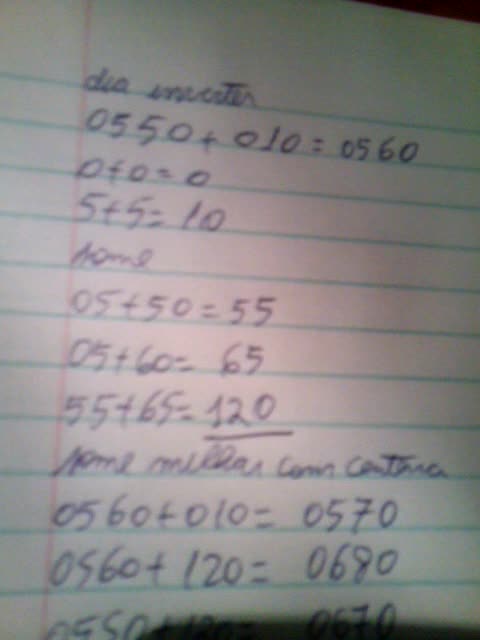 dia inverter
0550 + 010 = 0560
0+0=0
5+5=10
some
05+50=55
05+60= 65
55+65=120
some milhar com centena
0560+010= 0570
0560+ 120= 0680
0550+120= 0670